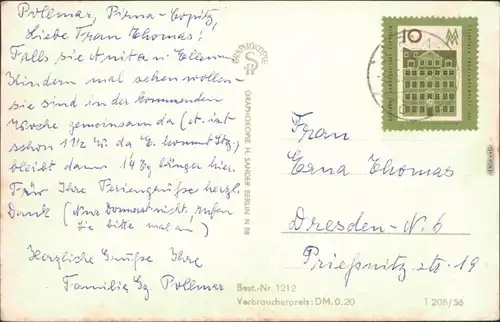 Pollmar, Pirna-Copitz,
Liebe Frau Thomas!
Falls sie Anita u. Ellen
Kindern mal sehen wollen
sie sind in der kommenden
Woche gemeinsam da (A. ist
schon 1 1/2 W. da E. kommt Stg.)
bleibt dann 14 Tg länger hier.
Für Ihre Feriengrüße herzl.
Dank (Nur Donnerst. nicht, rufen
Sie bitte mal an)
Herzliche Grüße Ihre
Familie Pollmar
GRAPHOKOPIE
GRAPHOKOPIE H. SANDER BERLIN N 58
10
Frau
Erna Thomas
Dresden-N. 6
Prießnitz str. 19
Best.-Nr. 1212
Verbraucherpreis: DM. 0.20
T 208/56